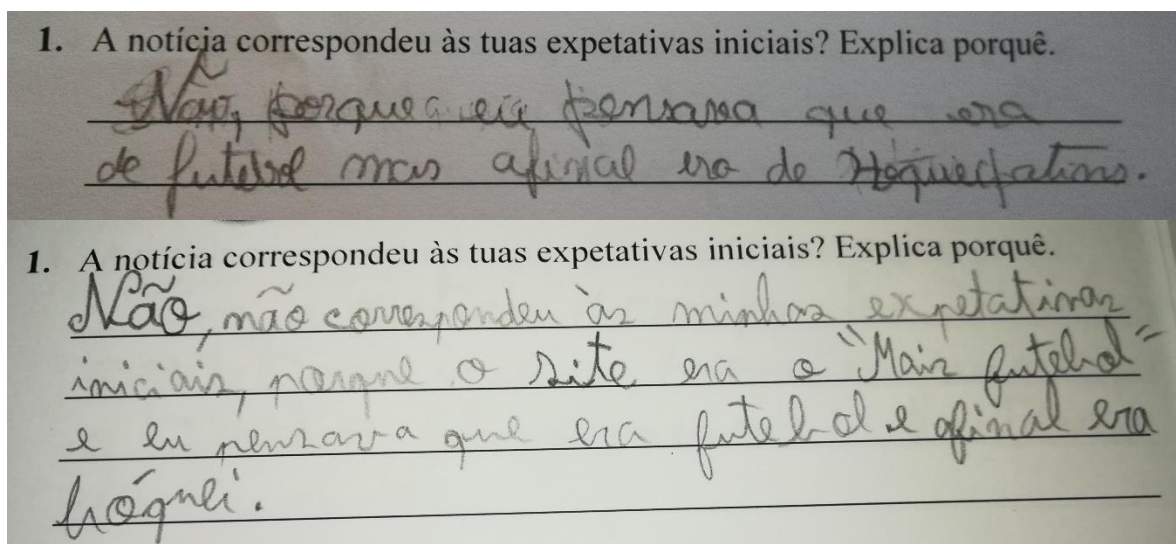 1. A notícia correspondeu às tuas expetativas iniciais? Explica porquê.
Não, porque eu pensava que era
de futebol mas afinal era de Hóquei patins.
1. A notícia correspondeu às tuas expetativas iniciais? Explica porquê.
Não, não correspondeu às minhas expetativas
iniciais, porque o site era o "Mais futebol"
e eu pensava que era futebol e afinal era
hóquei.